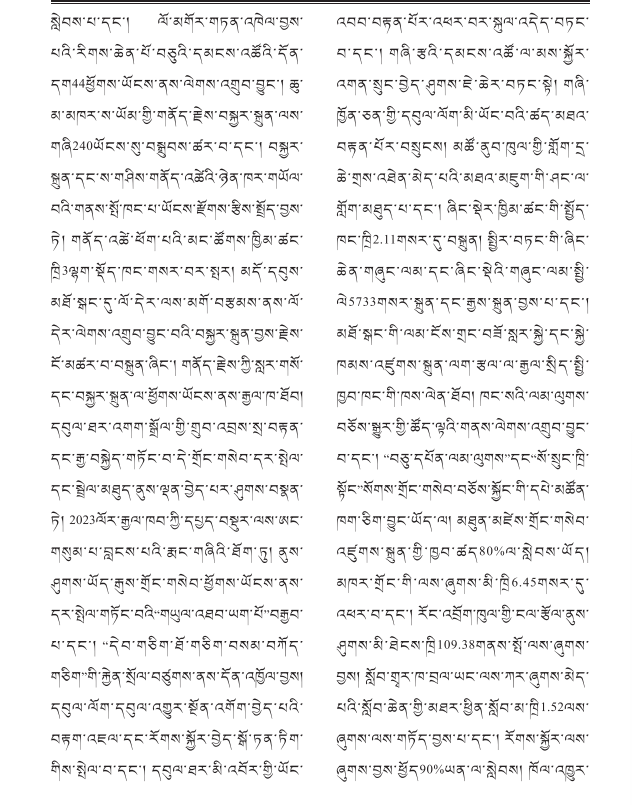 སླེབས་པ་དང་། ལོ་མགོར་གཏན་འཁེལ་བྱས་
པའི་རིགས་ཆེན་པོ་བཅུའི་དམངས་འཚོའི་དོན་
དག44ཕྱོགས་ཡོངས་ནས་ལེགས་འགྲུབ་བྱུང་། ཆུ་
མ་མཁར་ས་ཡོམ་གྱི་གནོད་རྗེས་བསྐྱར་སྐྲུན་ལས་
གཞི240ཡོངས་སུ་བསྒྲུབས་ཚར་བ་དང་། བསྐྱར་
སྐྲུན་དང་ས་གཤིས་གནོད་འཚེའི་ཉེན་ཁར་གཡོལ་
བའི་གནས་སྤོ་ཁང་པ་ཡོངས་རྫོགས་རྩིས་སྤྲོད་བྱས་
ཏེ། གནོད་འཚེ་ཕོག་པའི་མང་ཚོགས་ཁྱིམ་ཚང་
ཁྲི3ལྷག་སྡོད་ཁང་གསར་བར་སྤར། མདོ་དབུས་
མཐོ་སྒང་དུ་ལོ་དེར་ལས་མགོ་བརྩམས་ནས་ལོ་
དེར་ལེགས་འགྲུབ་བྱུང་བའི་བསྐྱར་སྐྲུན་བྱས་རྗེས་
ངོ་མཚར་བ་བསྐྲུན་ཞིང་། གནོད་རྗེས་ཀྱི་སླར་གསོ་
དང་བསྐྱར་སྐྲུན་ལ་ཕྱོགས་ཡོངས་ནས་རྒྱལ་ཁ་ཐོབ།
དབུལ་ཐར་འགག་སྒྲོལ་གྱི་གྲུབ་འབྲས་སྲ་བརྟན་
དང་རྒྱ་བསྐྱེད་གཏོང་བ་དེ་གྲོང་གསེབ་དར་སྤེལ་
དང་སྦྲེལ་མཐུད་ནུས་ལྡན་བྱེད་པར་ཤུགས་བསྣན་
ཏེ། 2023ལོར་རྒྱལ་ཁབ་ཀྱི་དཔྱད་བསྡུར་ལས་ཨང་
གསུམ་པ་བླངས་པའི་རྨང་གཞིའི་ཐོག་ཏུ། ནུས་
ཤུགས་ཡོད་རྒུས་གྲོང་གསེབ་ཕྱོགས་ཡོངས་ནས་
དར་སྤེལ་གཏོང་བའི“གཡུལ་འཐབ་ཡག་པོ”བརྒྱབ་
པ་དང་། “དེབ་གཅིག་ཐོ་གཅིག་བསམ་བཀོད་
གཅིག”གི་རྐྱེན་སྲོལ་བཙུགས་ནས་དོན་འཁྱོལ་བྱས།
དབུལ་ལོག་དབུལ་འགྱུར་སྔོན་འགོག་བྱེད་པའི་
བརྟག་འཇལ་དང་རོགས་སྐྱོར་བྱེད་སྒོ་ཏན་ཏིག་
གིས་སྤེལ་བ་དང་། དབུལ་ཐར་མི་འབོར་གྱི་ཡོང་
འབབ་བརྟན་པོར་འཕར་བར་སྐུལ་འདེད་བཏང་
བ་དང་། གཞི་རྩའི་དམངས་འཚོ་ལ་མས་སྐྱོར་
འགན་སྲུང་བྱེད་ཤུགས་ཇེ་ཆེར་བཏང་སྟེ། གཞི་
ཁྱོན་ཅན་གྱི་དབུལ་ལོག་མི་ཡོང་བའི་ཚད་མཐའ་
བརྟན་པོར་བསྲུངས། མཚོ་ནུབ་ཁུལ་གྱི་གློག་དྲ་
ཆེ་གྲས་འཐེན་མེད་པའི་མཐའ་མཇུག་གི་ཤང་ལ་
གློག་མཐུད་པ་དང་། ཞིང་སྡེར་ཁྱིམ་ཚང་གི་སྤྱོད་
ཁང་ཁྲི2.11གསར་དུ་བསྐྲུན། སྤྱིར་བཏང་གི་ཞིང་
ཆེན་གཞུང་ལམ་དང་ཞིང་སྡེའི་གཞུང་ལམ་སྤྱི་
ལེ5733གསར་སྐྲུན་དང་རྒྱས་སྐྲུན་བྱས་པ་དང་།
མཐོ་སྒང་གི་ལམ་ངོས་གྲང་བཟོ་སླར་སྐྱེ་དང་སྐྱེ་
ཁམས་འཛུགས་སྐྲུན་ལག་རྩལ་ལ་རྒྱལ་སྲིད་སྤྱི་
ཁྱབ་ཁང་གི་ཁས་ལེན་ཐོབ། ཁང་སའི་ལམ་ལུགས་
བཅོས་སྒྱུར་གྱི་ཚོད་ལྟའི་གནས་ལེགས་འགྲུབ་བྱུང་
བ་དང་། “བཅུ་དཔོན་ལམ་ལུགས”དང“སོ་སྲུང་ཁྲི་
སྟོང”སོགས་གྲོང་གསེབ་བཅོས་སྐྱོང་གི་དཔེ་མཚོན་
ཁག་ཅིག་བྱུང་ཡོད་ལ། མཐུན་མཛེས་གྲོང་གསེབ་
འཛུགས་སྐྲུན་གྱི་ཁྱབ་ཚད80%ལ་སླེབས་ཡོད།
མཁར་གྲོང་གི་ལས་ཞུགས་མི་ཁྲི6.45གསར་དུ་
འཕར་བ་དང་། རོང་འབྲོག་ཁུལ་གྱི་ངལ་རྩོལ་ནུས་
ཤུགས་མི་ཐེངས་ཁྲི109.38གནས་སྤོ་ལས་ཞུགས་
བྱས། སློབ་གྲྭར་ཁ་བྲལ་ཡང་ལས་ཀར་ཞུགས་མེད་
པའི་སློབ་ཆེན་གྱི་མཐར་ཕྱིན་སློབ་མ་ཁྲི1.52ལས་
ཞུགས་ལས་གཏོད་བྱས་པ་དང་། རོགས་སྐྱོར་ལས་
ཞུགས་བྱས་ཕྱོད90%ཡན་ལ་སླེབས། ཁོལ་འཁྱུར་